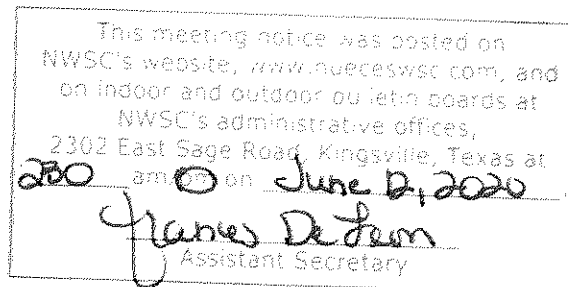 This meeting notice was posted on
NWSC's website, www.nueceswsc.com, and
on indoor and outdoor bulletin boards at
NWSC's administrative offices,
2302 East Sage Road, Kingsville, Texas at
230 am/pm on June 12, 2020
Frances De Leon
Assistant Secretary